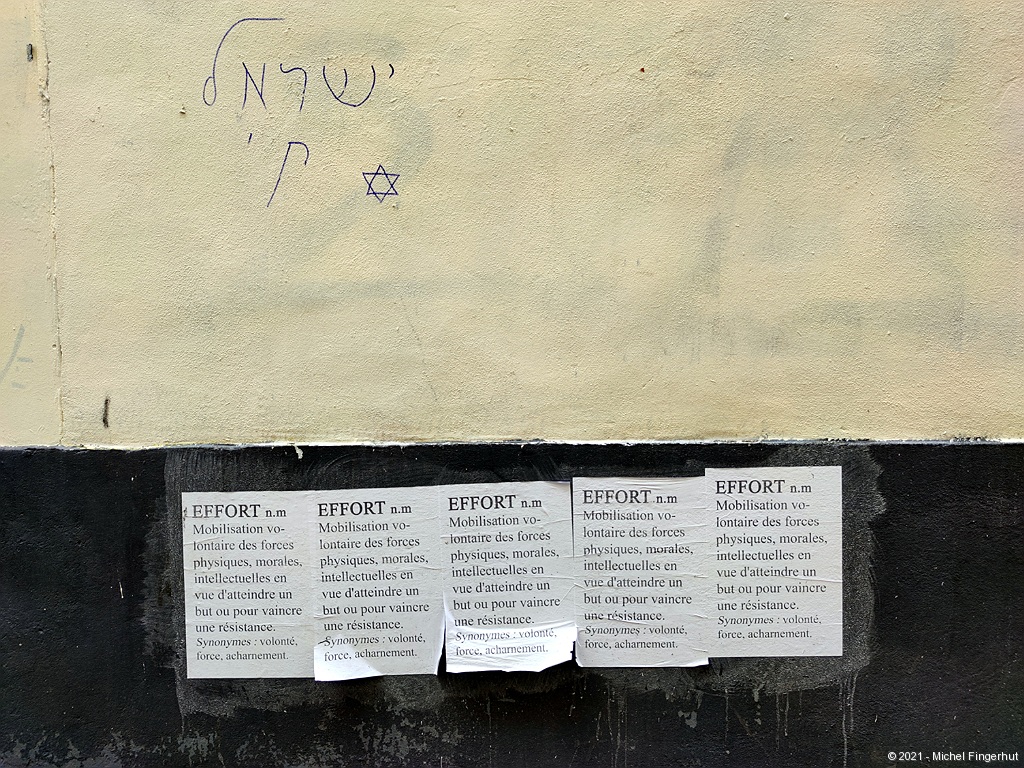 ישראל
חי
EFFORT n.m
Mobilisation vo-
lontaire des forces
physiques, morales,
intellectuelles en
vue d'atteindre un
but ou pour vaincre
une résistance.
Synonymes : volonté,
force, acharnement.
EFFORT n.m
Mobilisation vo-
lontaire des forces
physiques, morales,
intellectuelles en
vue d'atteindre un
but ou pour vaincre
une résistance.
Synonymes : volonté,
force, acharnement.
EFFORT n.m
Mobilisation vo-
lontaire des forces
physiques, morales,
intellectuelles en
vue d'atteindre un
but ou pour vaincre
une résistance.
Synonymes : volonté,
force, acharnement.
EFFORT n.m
Mobilisation vo-
lontaire des forces
physiques, morales,
intellectuelles en
vue d'atteindre un
but ou pour vaincre
une résistance.
Synonymes : volonté,
force, acharnement.
EFFORT n.m
Mobilisation vo-
lontaire des forces
physiques, morales,
intellectuelles en
vue d'atteindre un
but ou pour vaincre
une résistance.
Synonymes : volonté,
force, acharnement.
© 2021 - Michel Fingerhut